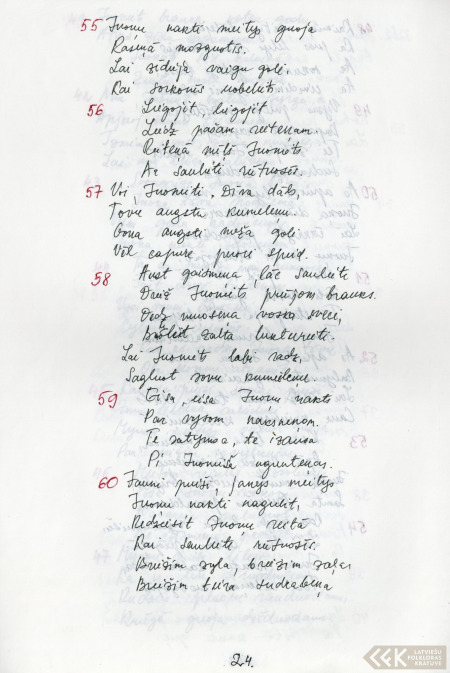 55 Juoņu nakti meitys guoja
Rasiņā mozguotīs.
Lai zīdūja vaigu goli,
Kai sorkonīs uobeļuti.
56 Leigojit, leigojit
Leidz pašam reitenam.
Reitenā mīļš Juoneits
Ar sauleiti rūtuosīs.
57 Voi, Juoneiti, Dīva dāls,
Tovu augstu kumeļeņu.
Gona augsti meža goli
Vēl capure puori speid.
58 Aust gaismeņa, lāc sauleite
Dreiž Juoneits prūjom brauks.
Dedz muoseņa voska sveci,
zalta luktureiti.
Lai Juoneits labi radz,
Sagluot sovu kumeļeņu.
59 Eisa, eisa Juoņu nakts
Par vysom naksneņom.
Te satymsa, te izausa
Pi Juoneiša uguņteņas.
60 Jauni puiši, jaunys meitys
Juoņu nakti nagulit,
Redzēsit Juoņu reitā
Kai sauleiti rūtuosīs.
Breižim zyla, breižim zaļa,
Breižim teira sudrabeņa
24.
LATVIEŠU
FOLKLORAS
KRĀTUVE